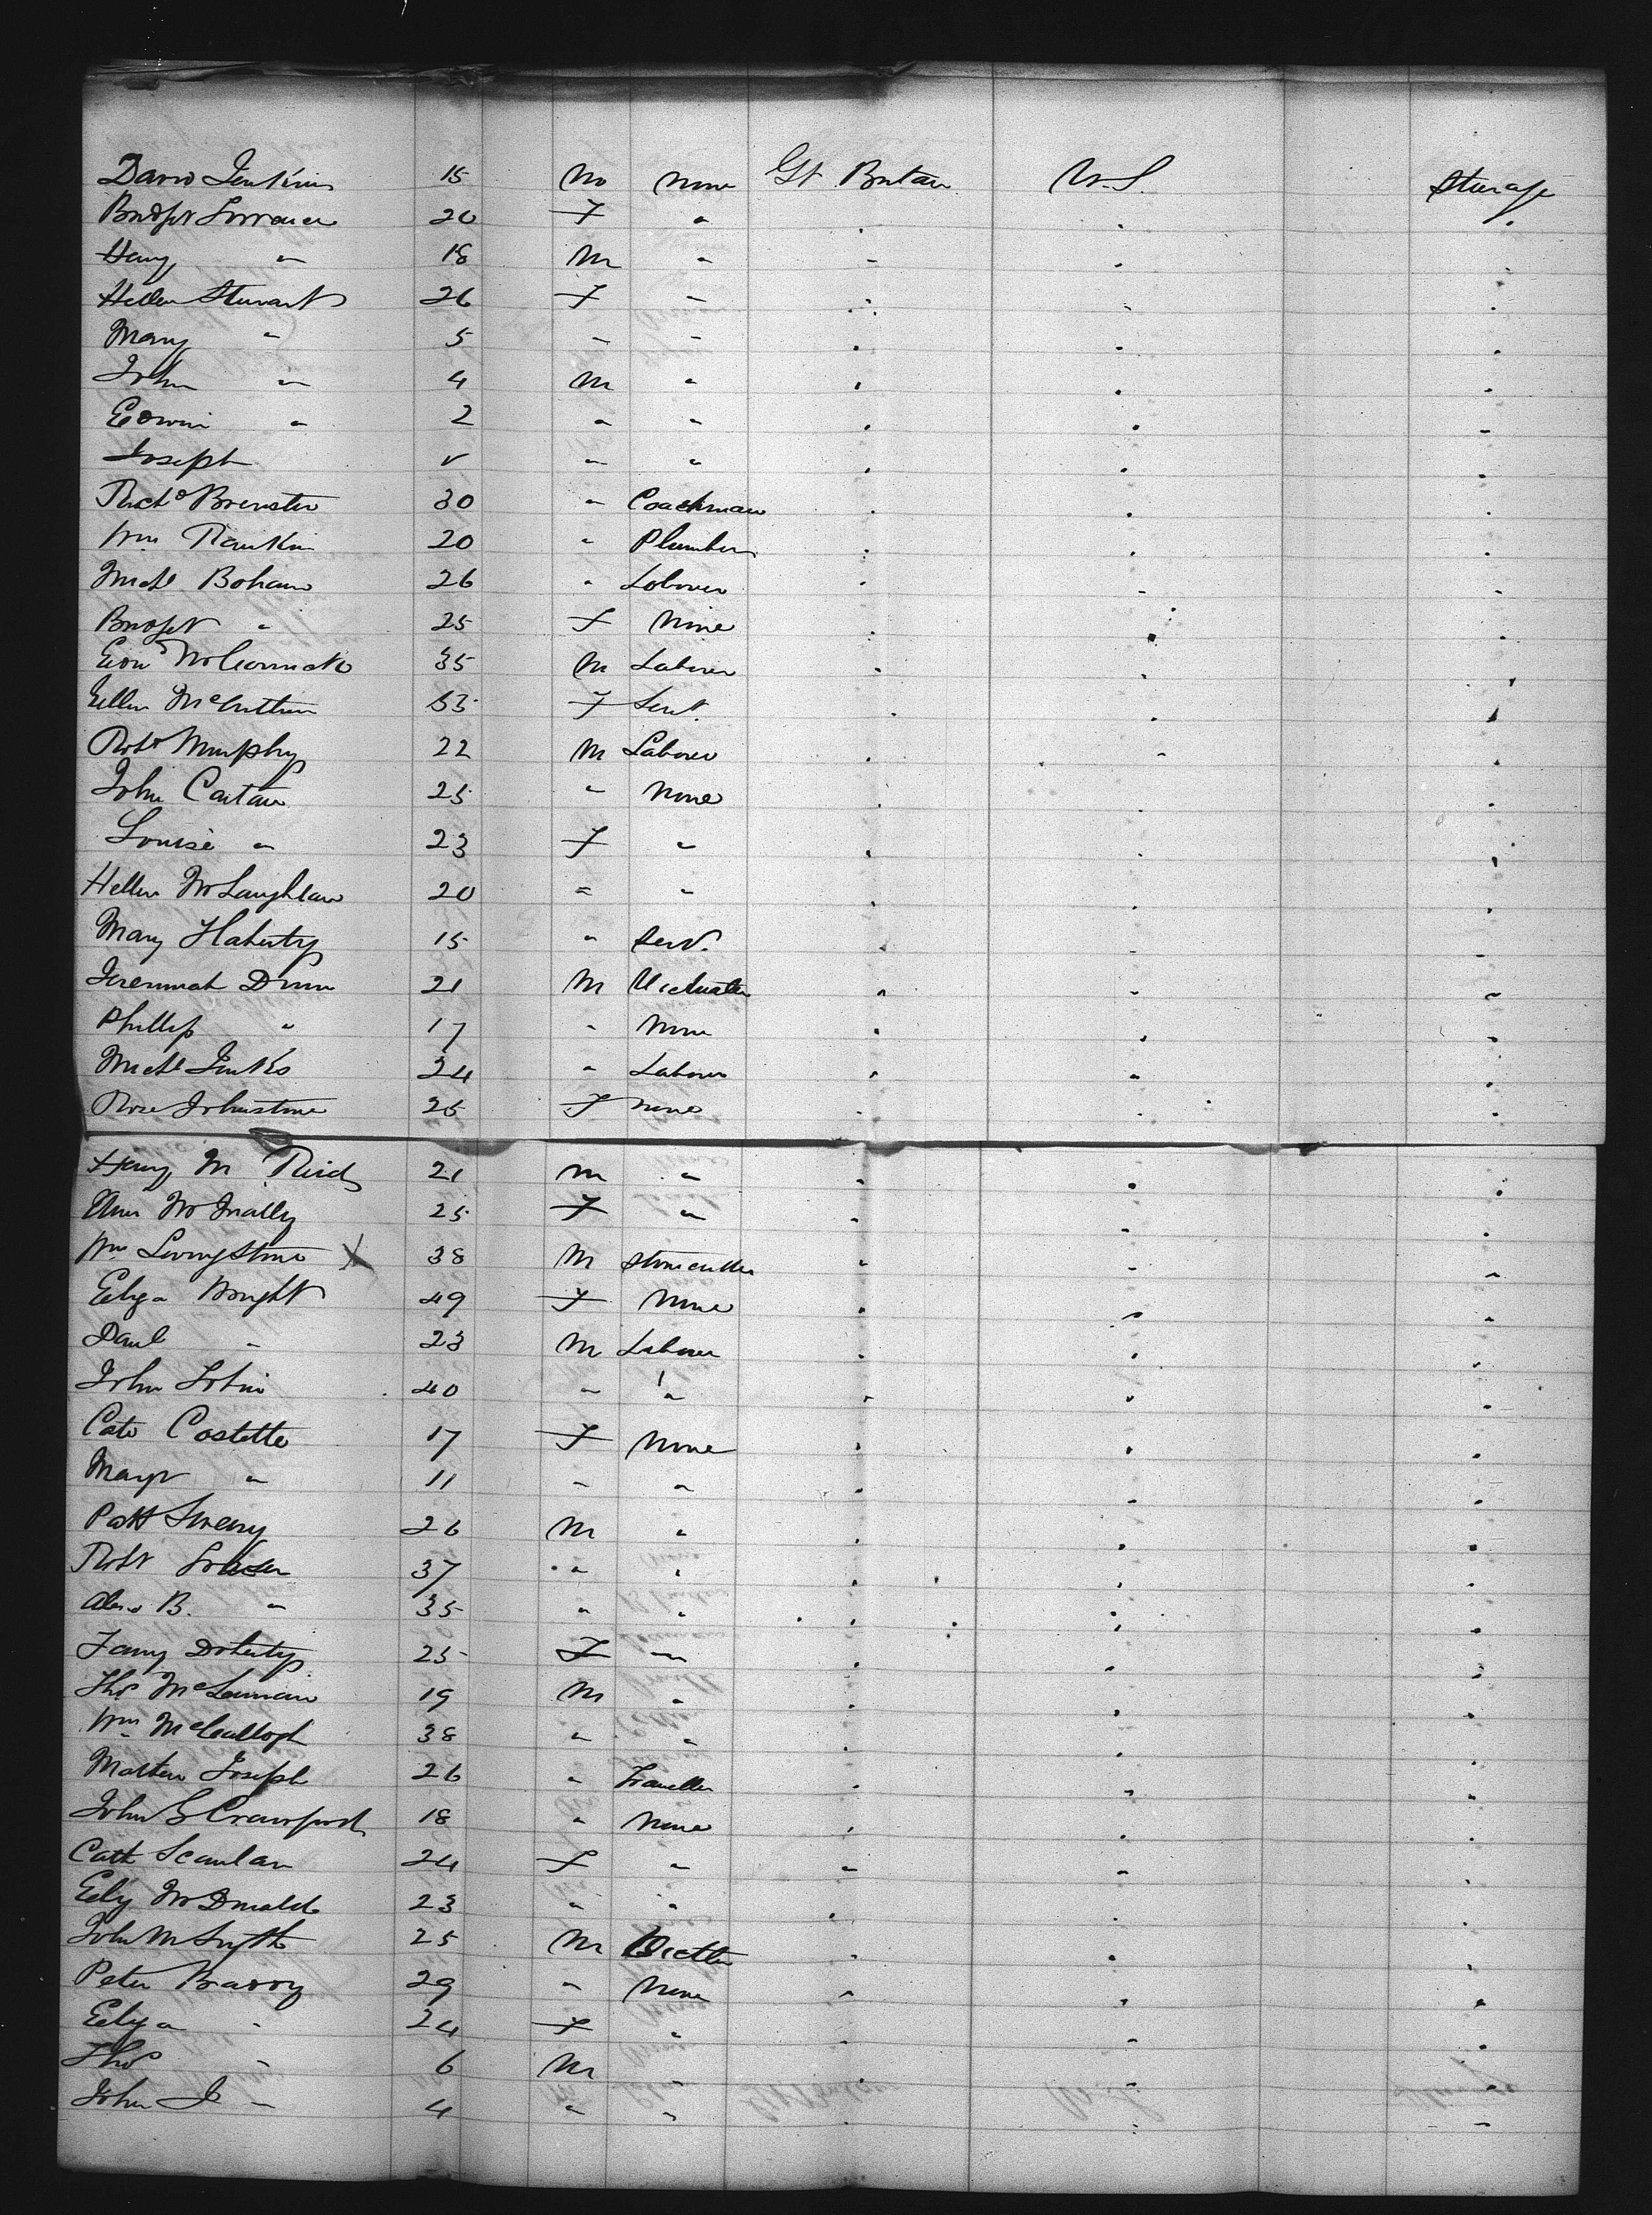 David Jenkins 15 M none Gt Britain U.S. Steerage
Bridget Lorrance 20 F " " " "
Henry " 18 M " " " "
Hellen Stewart 26 F " " " "
Mary " 5 " " " " "
John " 4 M " " " "
Edwin " 2 " " " " "
Joseph " " " " "
Richd Brewster 30 " Coachman " " "
Wm Rankin 20 " Plumber " " "
Michl Bohan 26 " Laborer " " "
Bridget " 25 F None " " "
Edwd McCormick 35 M Laborer " " "
Ellen 33 F Servt " " "
Robt Murphy 22 M Laborer " " "
John 25 " None " " "
Louise " 23 F " " " "
Hellen McLaughlan 20 " " " " "
Mary Flaherty 15 " Serv. " " "
Jeremiah Dunn 21 M Victualer " " "
Phillip " 17 " None " " "
Michl Jenks 24 " Laborer " " "
Rose Johnstone 25 F None " " "
Henry M Reid 21 M " " " "
Ann McNally 25 F " " " "
Wm Livingstone X 38 M Stonecutter " " "
Eliza Wright 49 F None " " "
Paul " 23 M Laborer " " "
John 40 " " " " "
Cate Costette 17 F None " " "
Margt " 11 " " " " "
Patk Sweeny 26 M " " " "
Robt 37 " " " " "
Alexr B. " 35 " " " " "
Fanny Doherty 25 F " " " "
Thos McLennan 19 M " " " "
Wm McCullogh 38 " " " " "
Joseph 26 " Traveller " " "
John S Crawford 18 " None " " "
Cath Scanlan 24 F " " " "
Eliz McDonald 23 " " " " "
John M Smyth 25 M " " "
Peter Braddy 29 " None " " "
Eliza " 24 F " " " "
Thos " 6 M " " " "
John J " 4 " " " " "